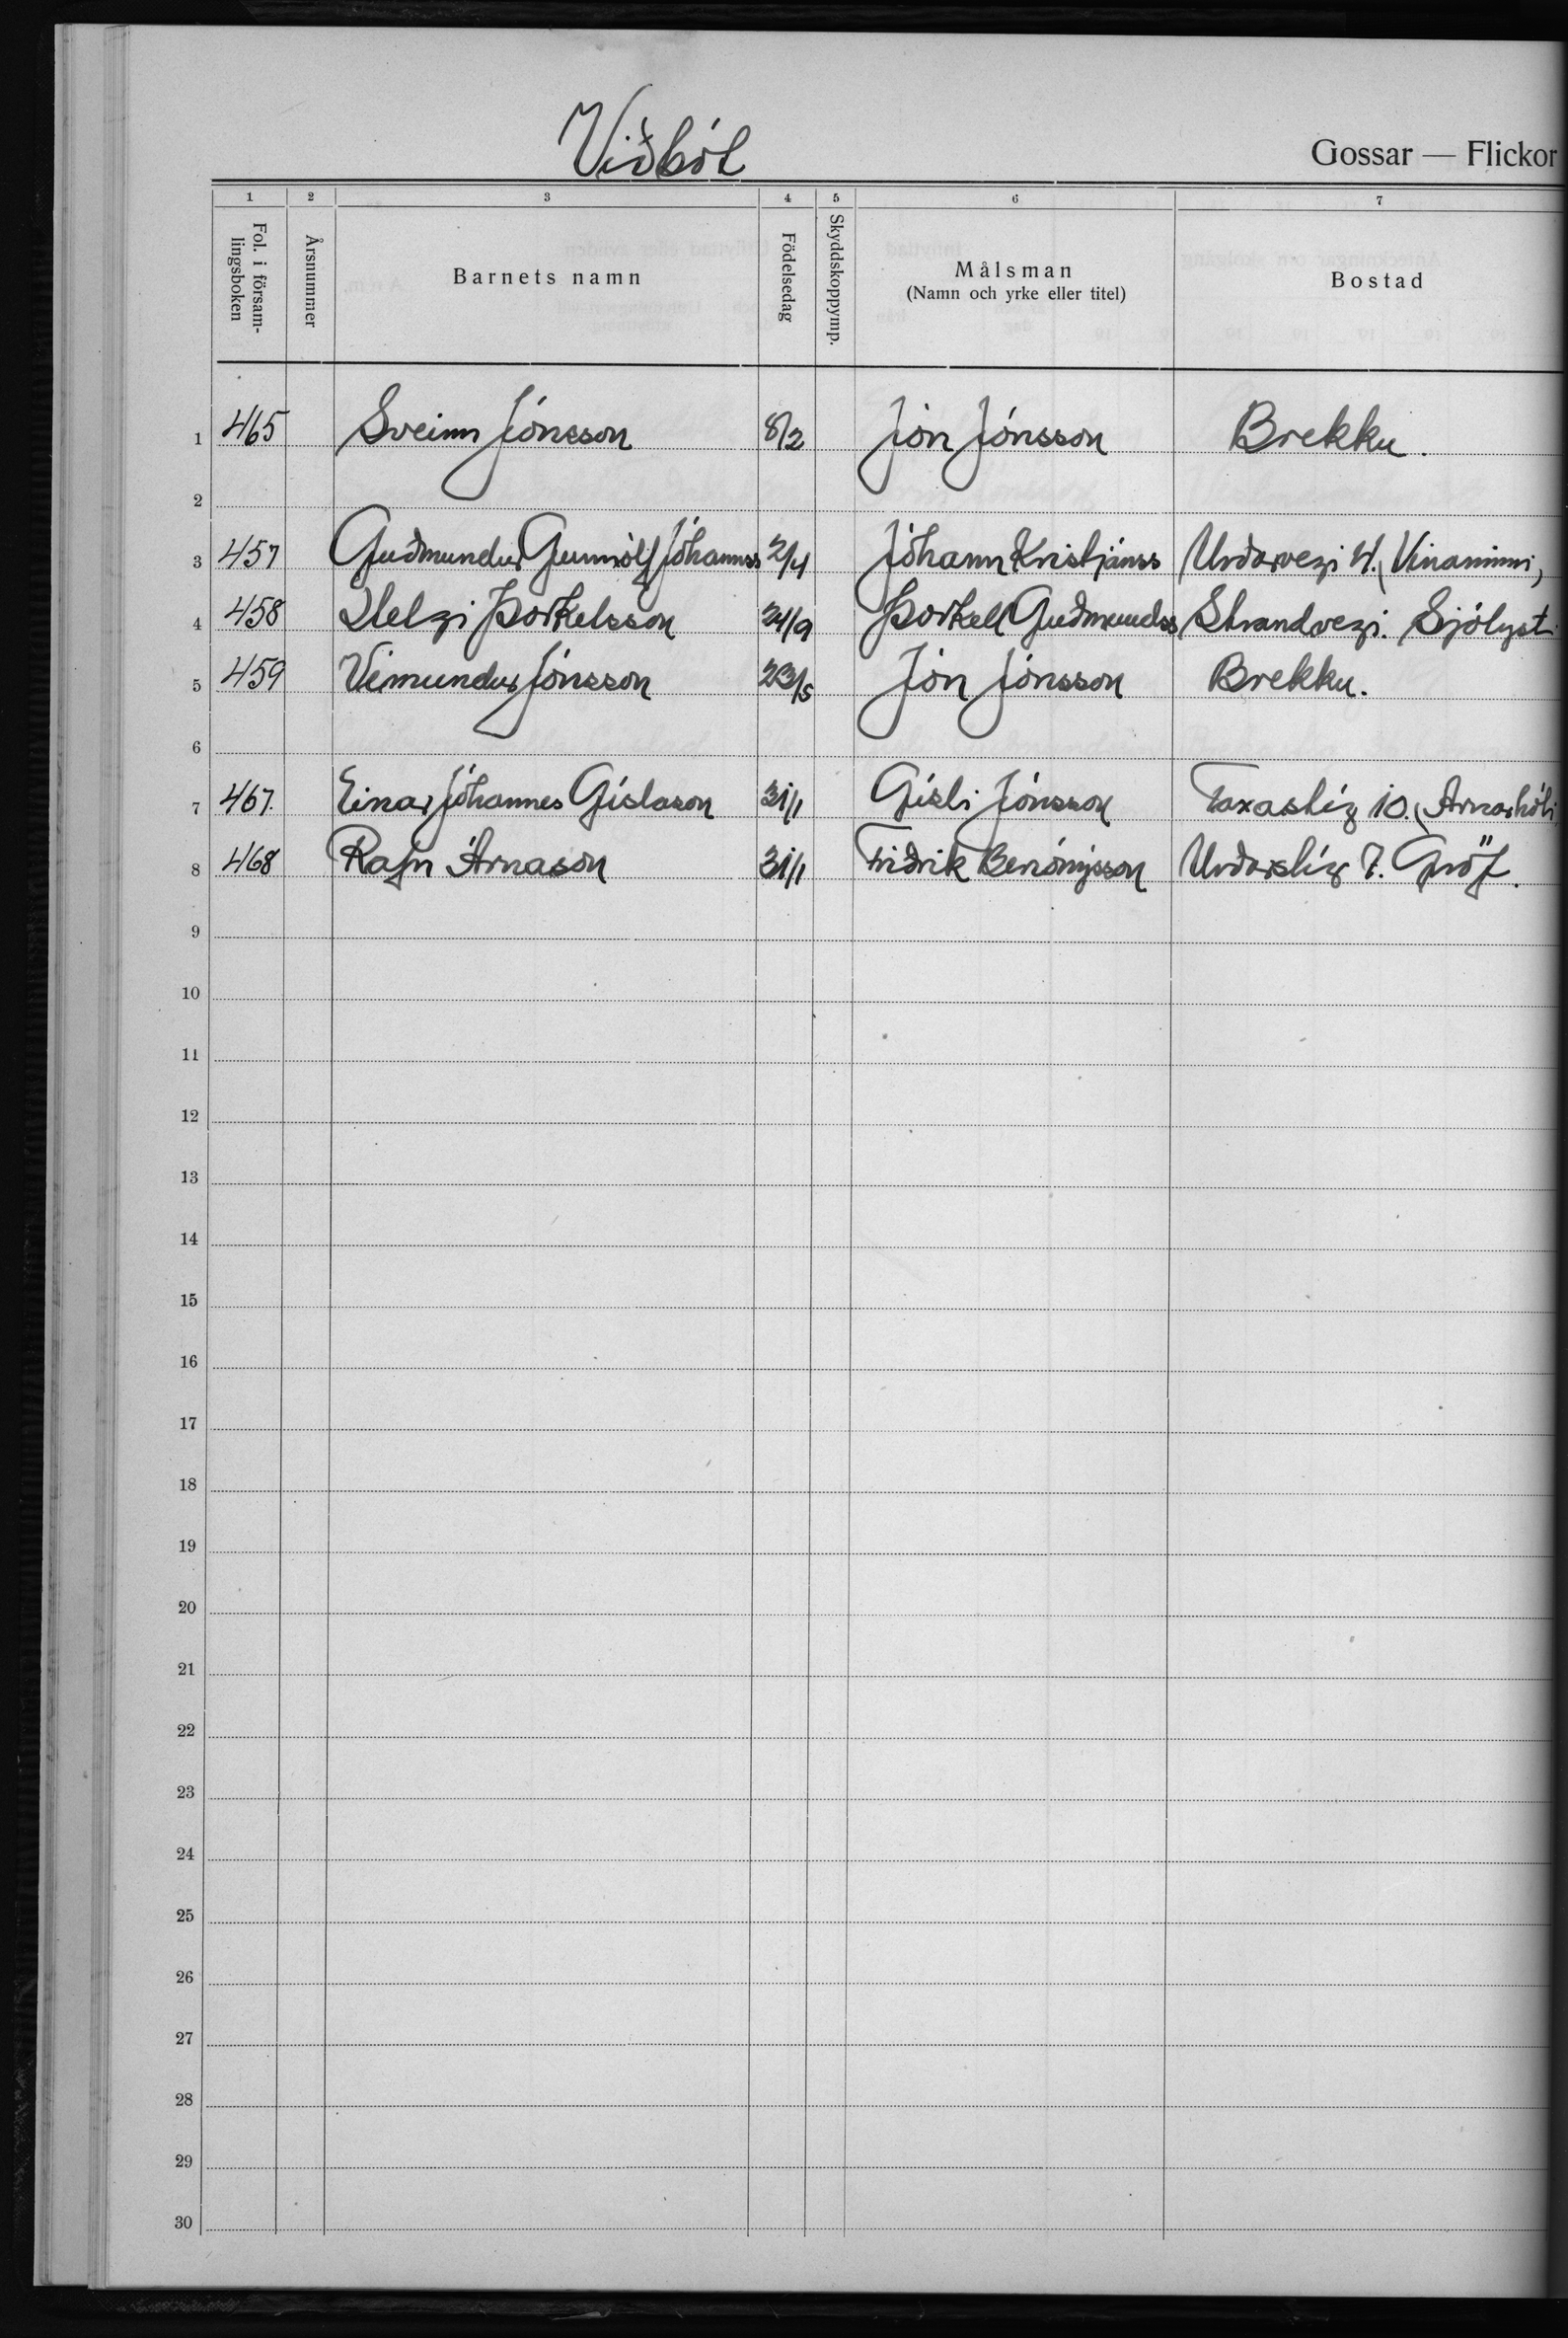 Viðból
Gossar — Flickor
1 2 3 4 5 6 7
Fol. i försam-
lingsboken
Årsnummer
Barnets namn
Födelsedag
Skyddskoppymp.
Målsman
(Namn och yrke eller titel)
Bostad
1 465 Sveinn Jónsson 8/2 Jón Jónsson Brekku.
2
3 457 Guðmundur Gunnólf Jóhannss 2/4 Jóhann Kristjánss Urðavegi 4. (Vinaminni)
4 458 Helgi Þorkelsson 24/9 Þorkell Guðmundss Strandvegi. Sjólyst
5 459 Vémundur Jónsson 23/5 Jón Jónsson Brekku.
6
7 467. Einar Jóhannes Gíslason 31/1 Gísli Jónsson Faxastíg 10. (Arnarhóli
8 468 Rafn Árnason 31/1 Friðrik Benónýsson Urðarstíg 7. Gröf.
9
10
11
12
13
14
15
16
17
18
19
20
21
22
23
24
25
26
27
28
29
30